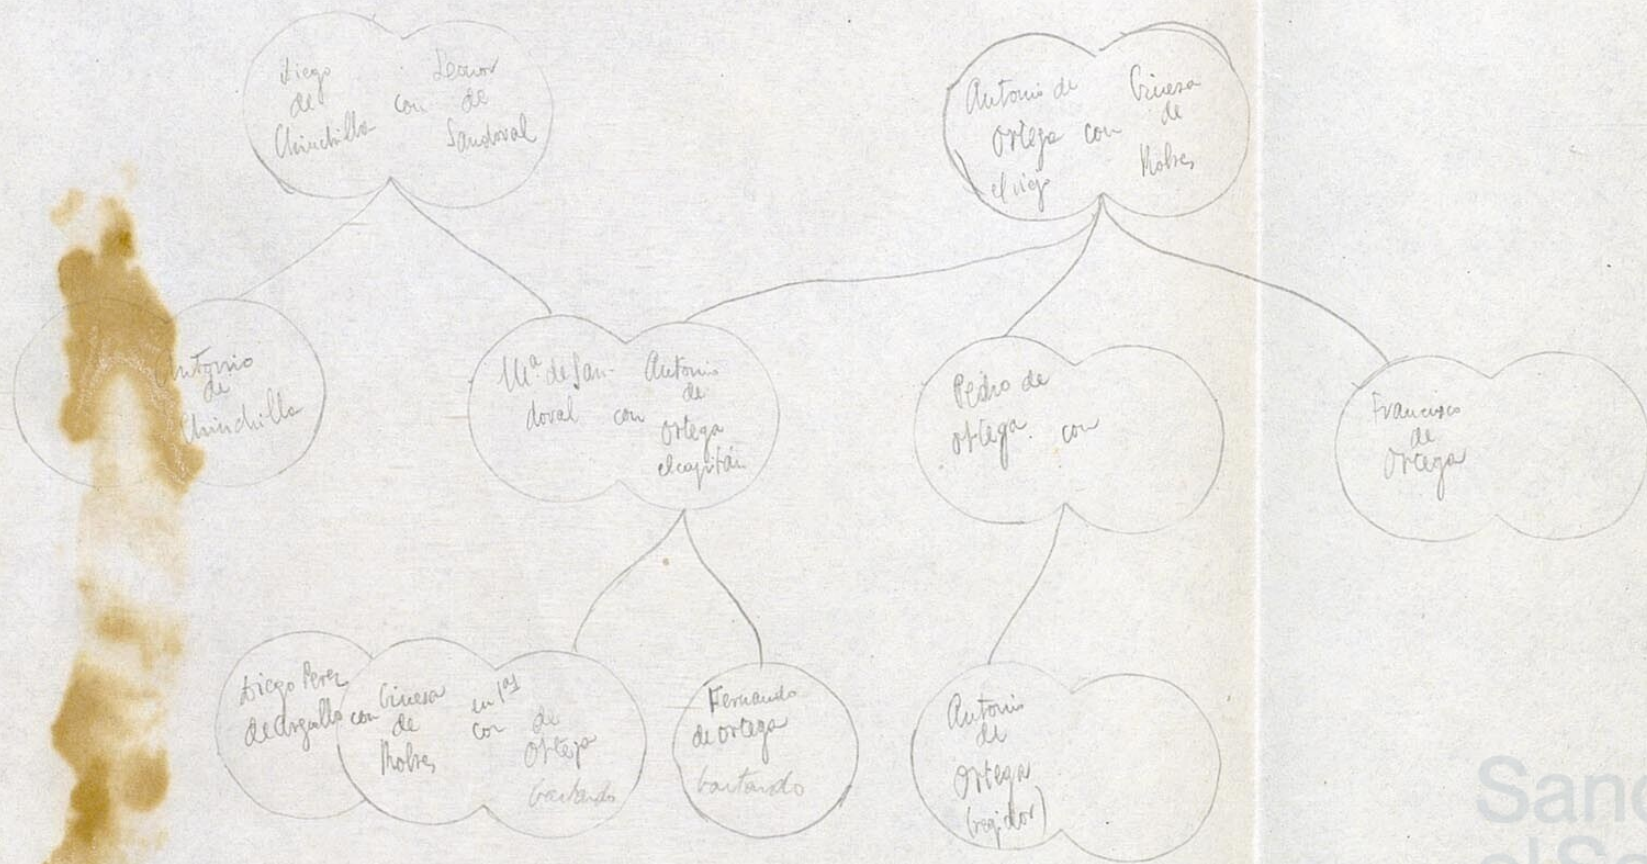 Diego
de
Chinchilla
con
Leonor
de
Sandoval
Antonio de
Ortega
el viejo
con
Ginesa
de
Robres
Antonio
de
Chinchilla
Mª. de San-
doval con
Antonio
de
Ortega
el capitán
Pedro de
Ortega. con
Francisco
de
Ortega
Diego Perez
de Argullo con
Ginesa
de
Robres
en 1as
con
de
Ortega
bastardo
Fernando
de Ortega
bastardo
Antonio
de
Ortega
(regidor)